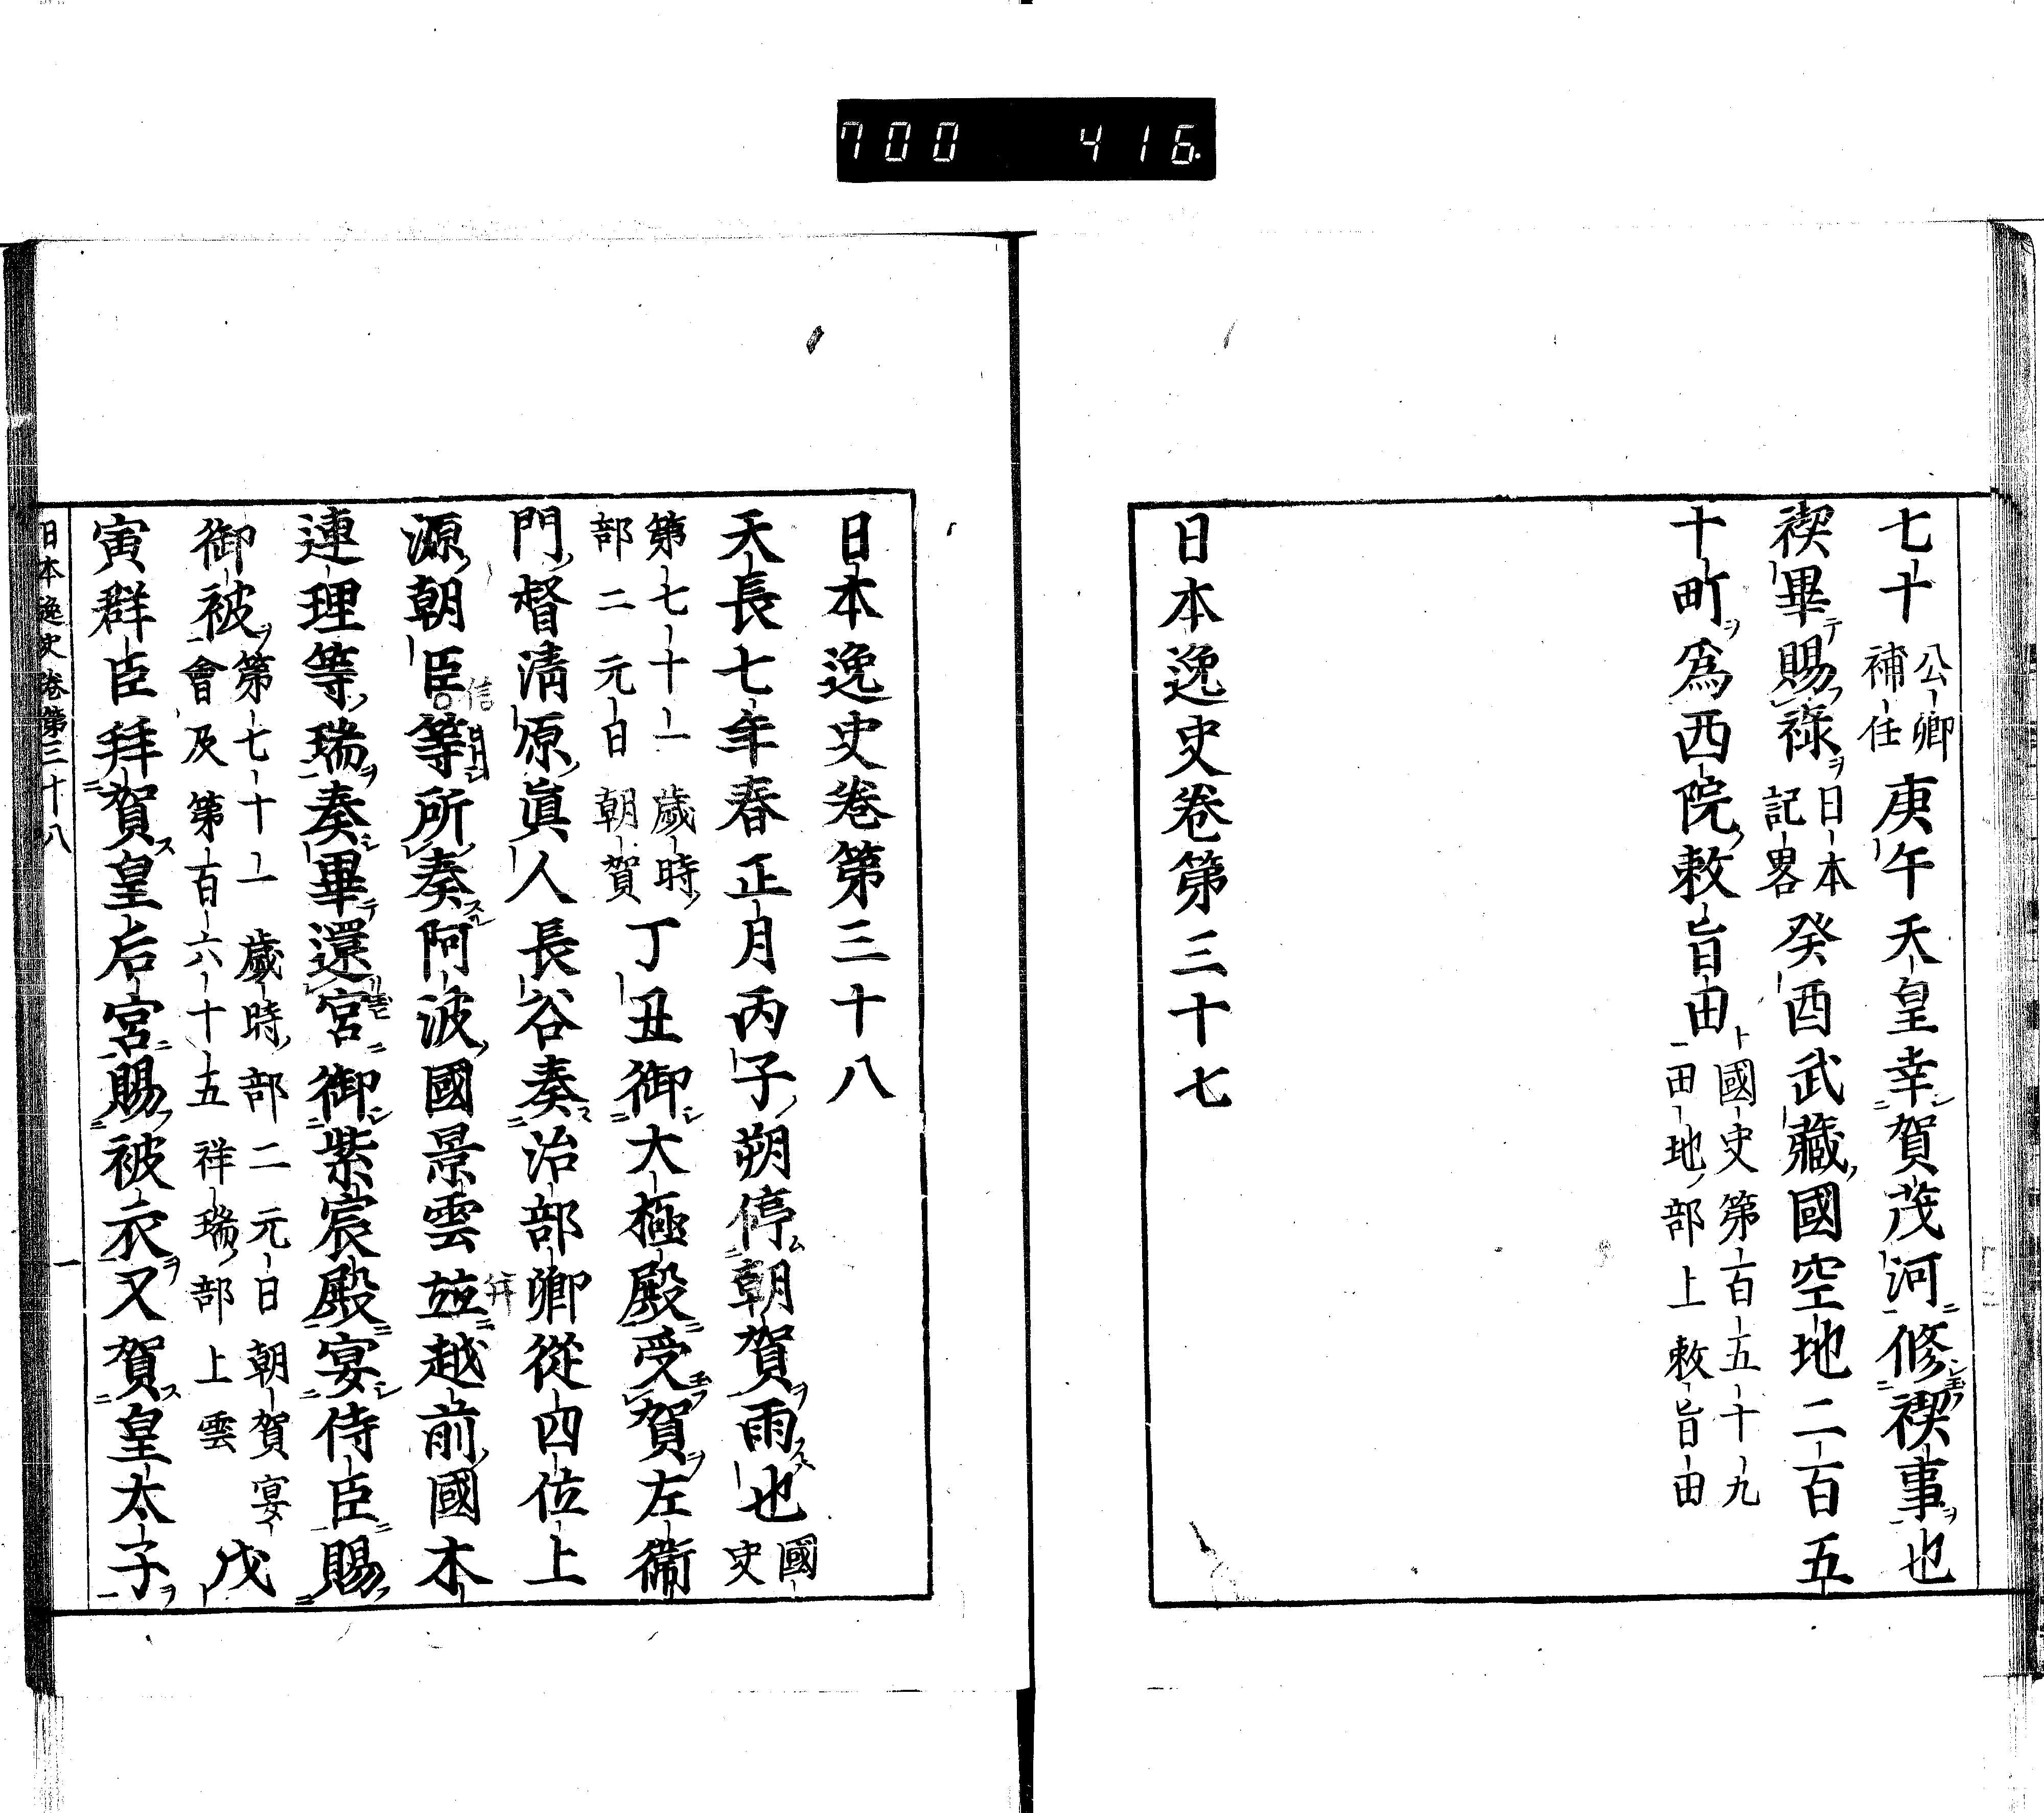 700 416
七十公卿補任庚午天皇幸賀茂河修禊事也
禊畢賜祿日本記畧癸酉武藏國空地二百五
十町為西院敕旨田國史第百五十九田地部上敕旨田
日本逸史卷第三十七
日本逸史卷第三十八
天長七年春正月丙子朔停朝賀雨也國史
第七十一歲時部二元日朝賀丁丑御大極殿受賀左衞
門督淸原眞人長谷奏治部卿從四位上
源朝臣信等所奏阿波國景雲並越前國木
連理等瑞奏畢還宮御紫宸殿宴侍臣賜
御被第七十一歲時部二元日朝賀宴會及第百六十五祥瑞部上雲戊
寅群臣拜賀皇后宮賜被衣又賀皇太子
日本逸史卷第三十八 一